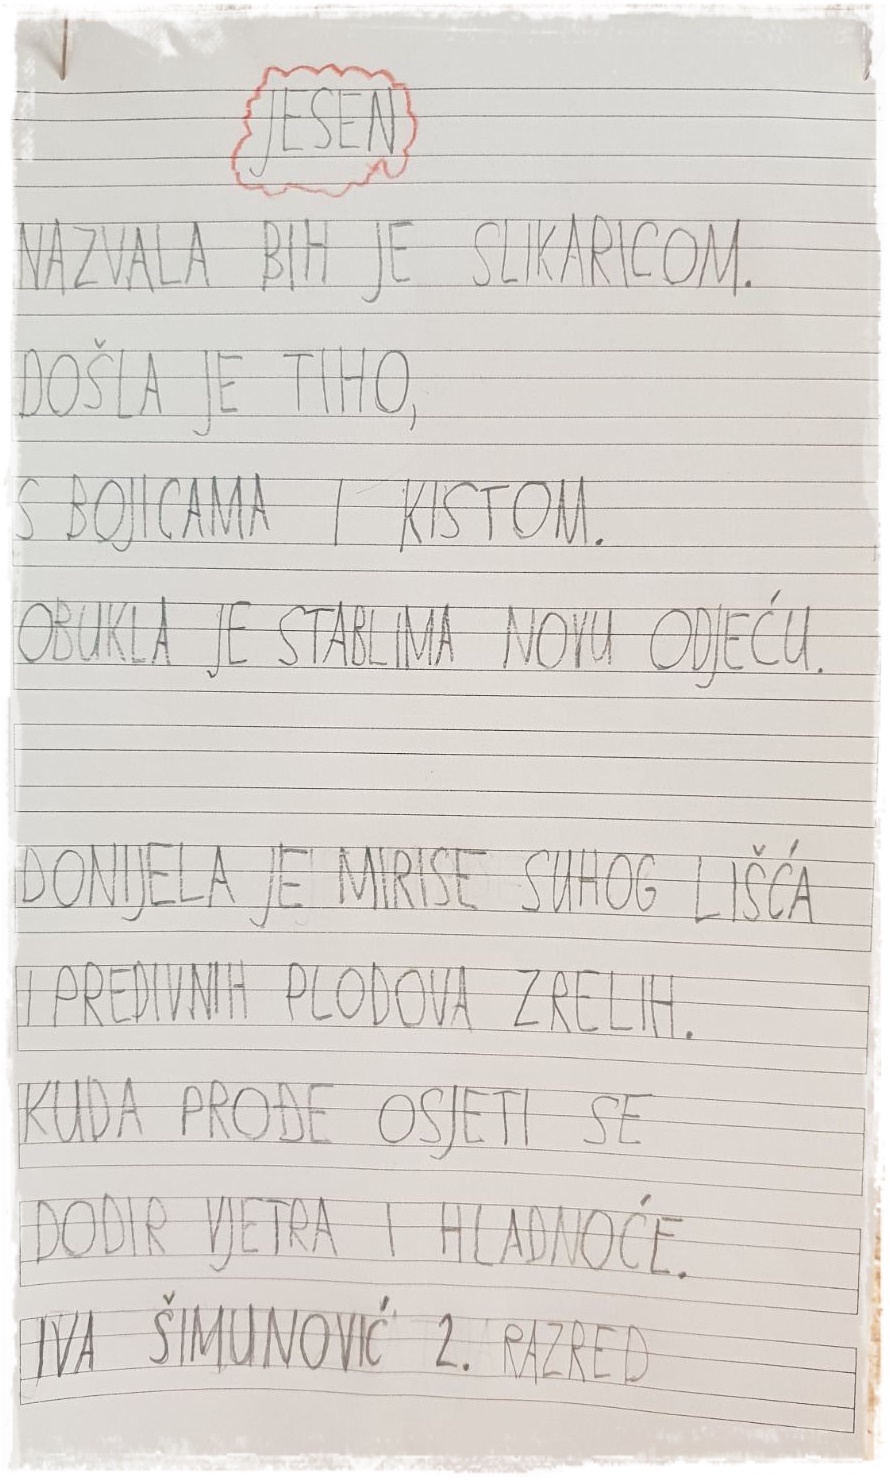 JESEN
NAZVALA BIH JE SLIKARICOM.
DOŠLA JE TIHO,
S BOJICAMA I KISTOM.
OBUKLA JE STABLIMA NOVU ODJEĆU.
DONIJELA JE MIRISE SUHOG LIŠĆA
I PREDIVNIH PLODOVA ZRELIH.
KUDA PROĐE OSJETI SE
DODIR VJETRA I HLADNOĆE.
IVA ŠIMUNOVIĆ 2. RAZRED